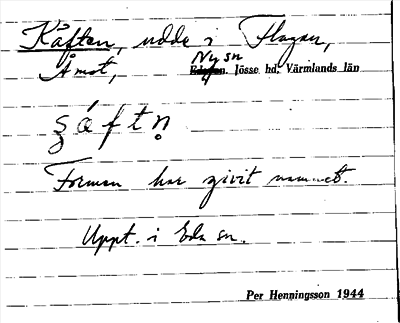 Käften, udde i Flagan,
Åmot, Ny sn. Jösse hd, Värmlands län
ʂáftn̥
Formen har givit namnet.
Uppt. i Eda sn.
Per Henningsson 1944